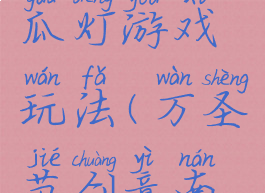 guā dēng yóu xì
瓜灯游戏
wán fǎ wàn shèng
玩法(万圣
jié chuàng yì nán
节创意南